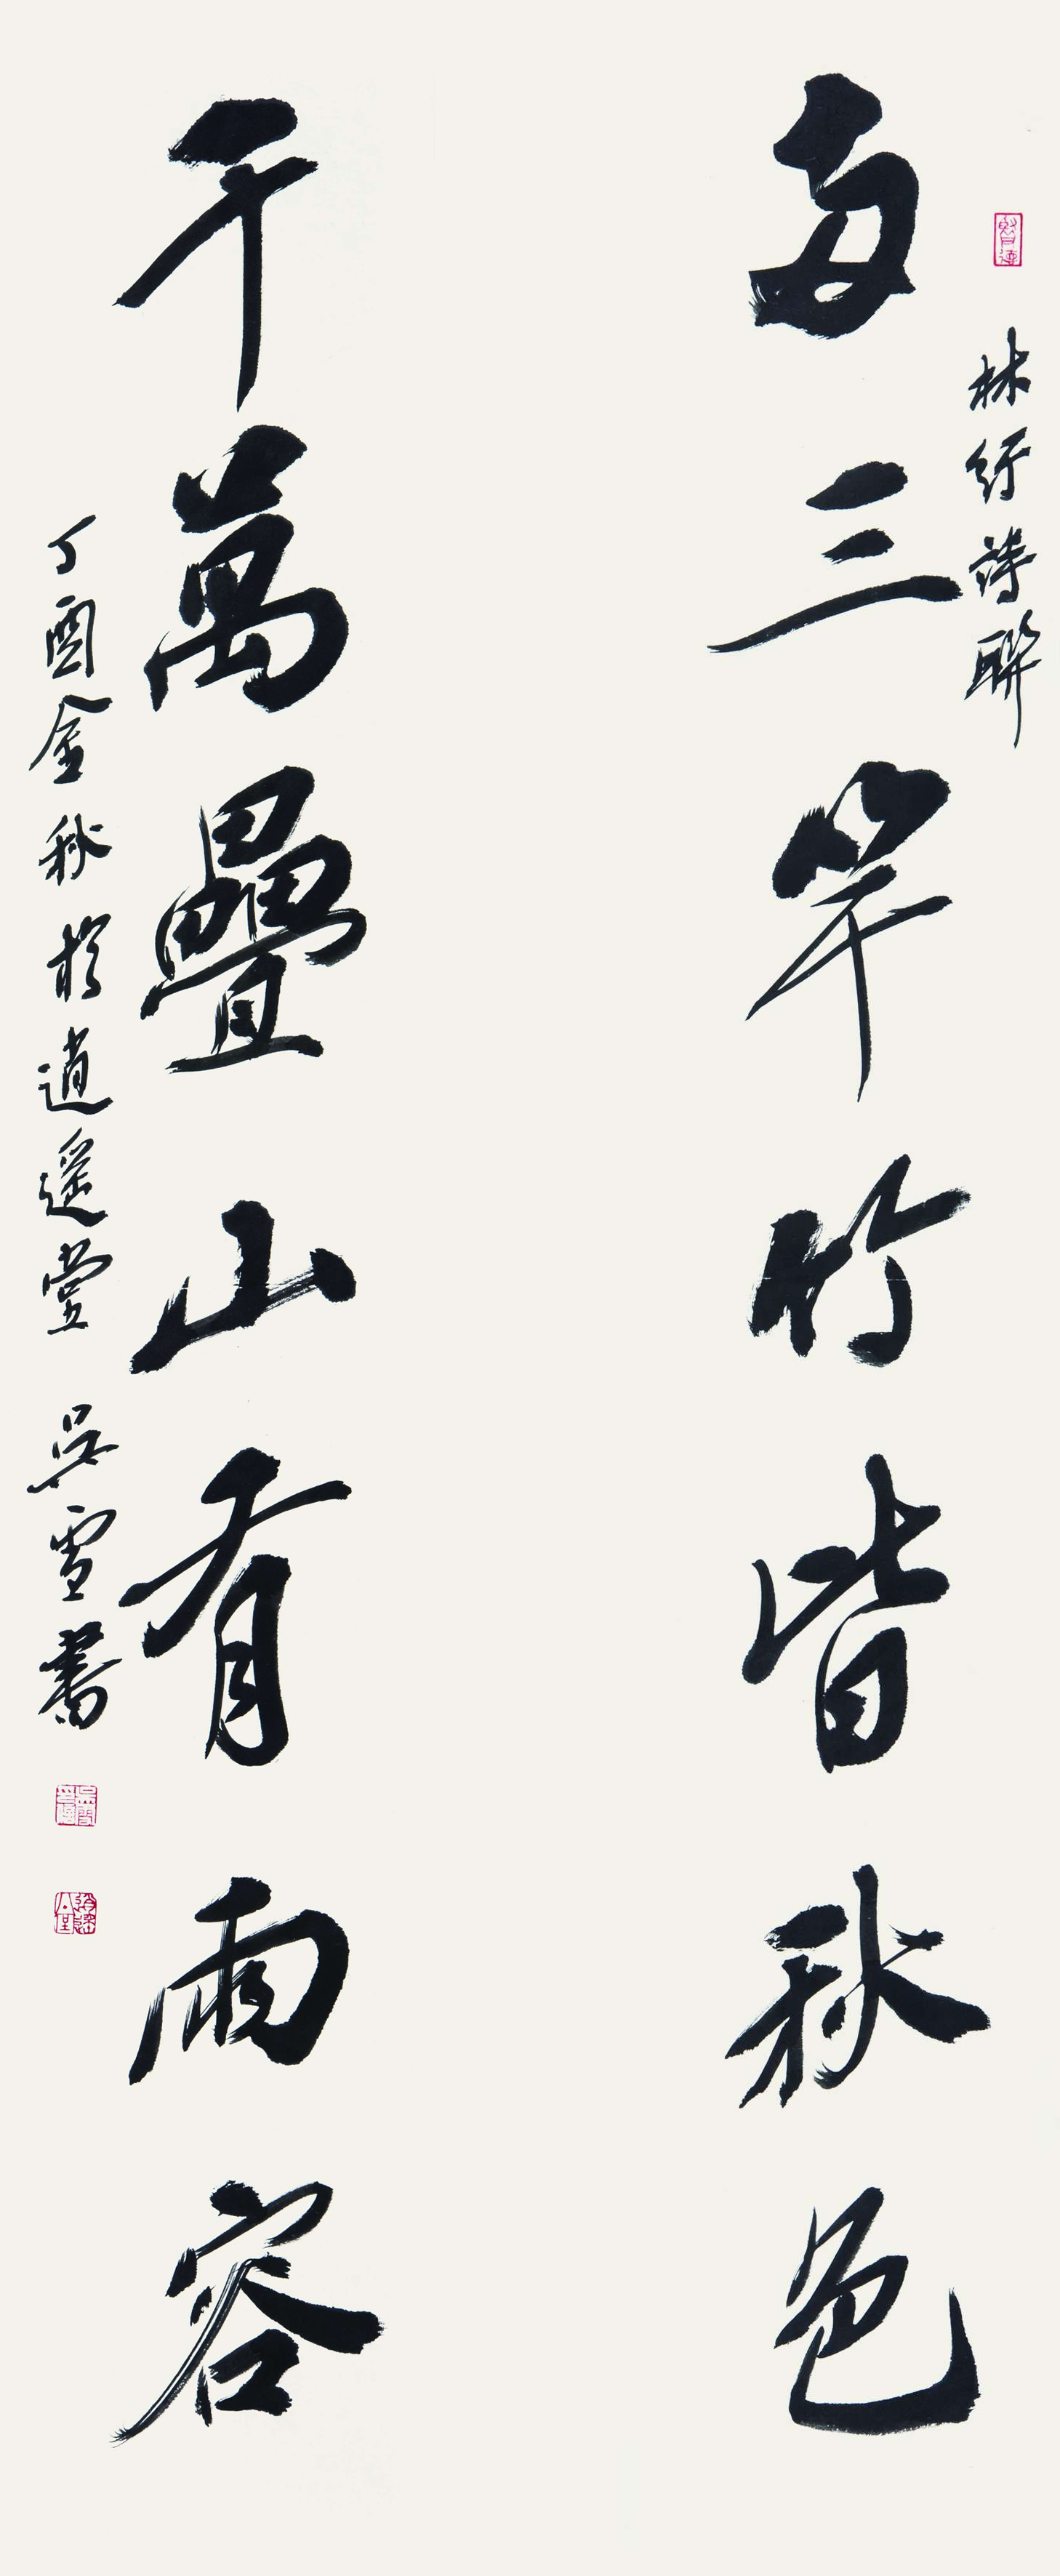 林紓詩聯
兩三竿竹皆秋色
千萬疊山有雨容
丁酉金秋於逍遥堂 吳雪書